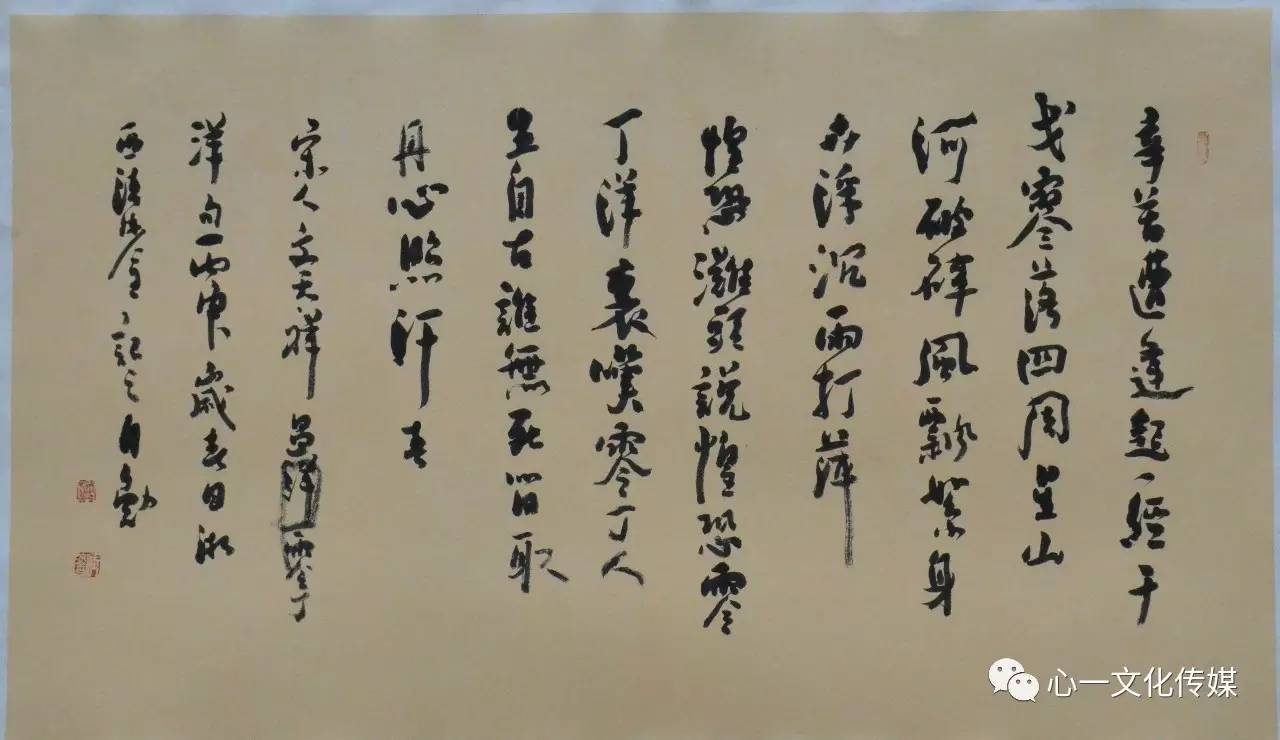 辛苦遭逢起一經干
戈寥落四周星山
河破碎風飄絮身
世浮沉雨打萍
惶恐灘頭說惶恐零
丁洋裏嘆零丁人
生自古誰無死留取
丹心照汗青
宋人文天祥過洋零丁
洋句丙申歲春日
西記之自勳
心一文化传媒